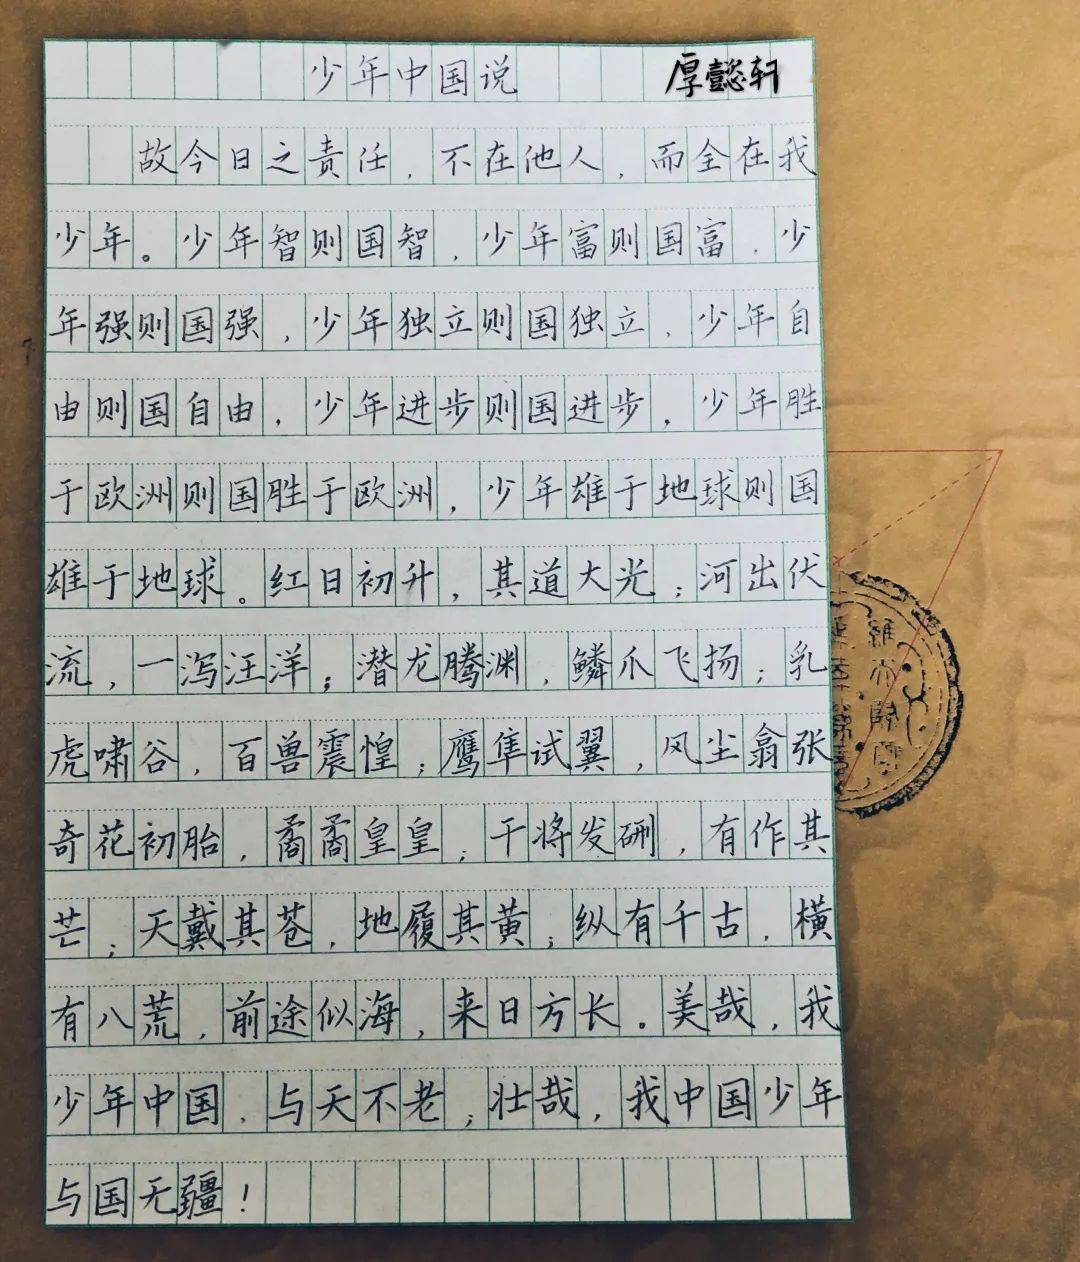 少年中国说
厚懿轩
故今日之责任，不在他人，而全在我
少年。少年智则国智，少年富则国富，少
年强则国强，少年独立则国独立，少年自
由则国自由，少年进步则国进步，少年胜
于欧洲则国胜于欧洲，少年雄于地球则国
雄于地球。红日初升，其道大光；河出伏
流，一泻汪洋；潜龙腾渊，鳞爪飞扬；乳
虎啸谷，百兽震惶；鹰隼试翼，风尘翕张
奇花初胎，矞矞皇皇；干将发硎，有作其
芒；天戴其苍，地履其黄；纵有千古，横
有八荒，前途似海，来日方长。美哉，我
少年中国，与天不老；壮哉，我中国少年
与国无疆！